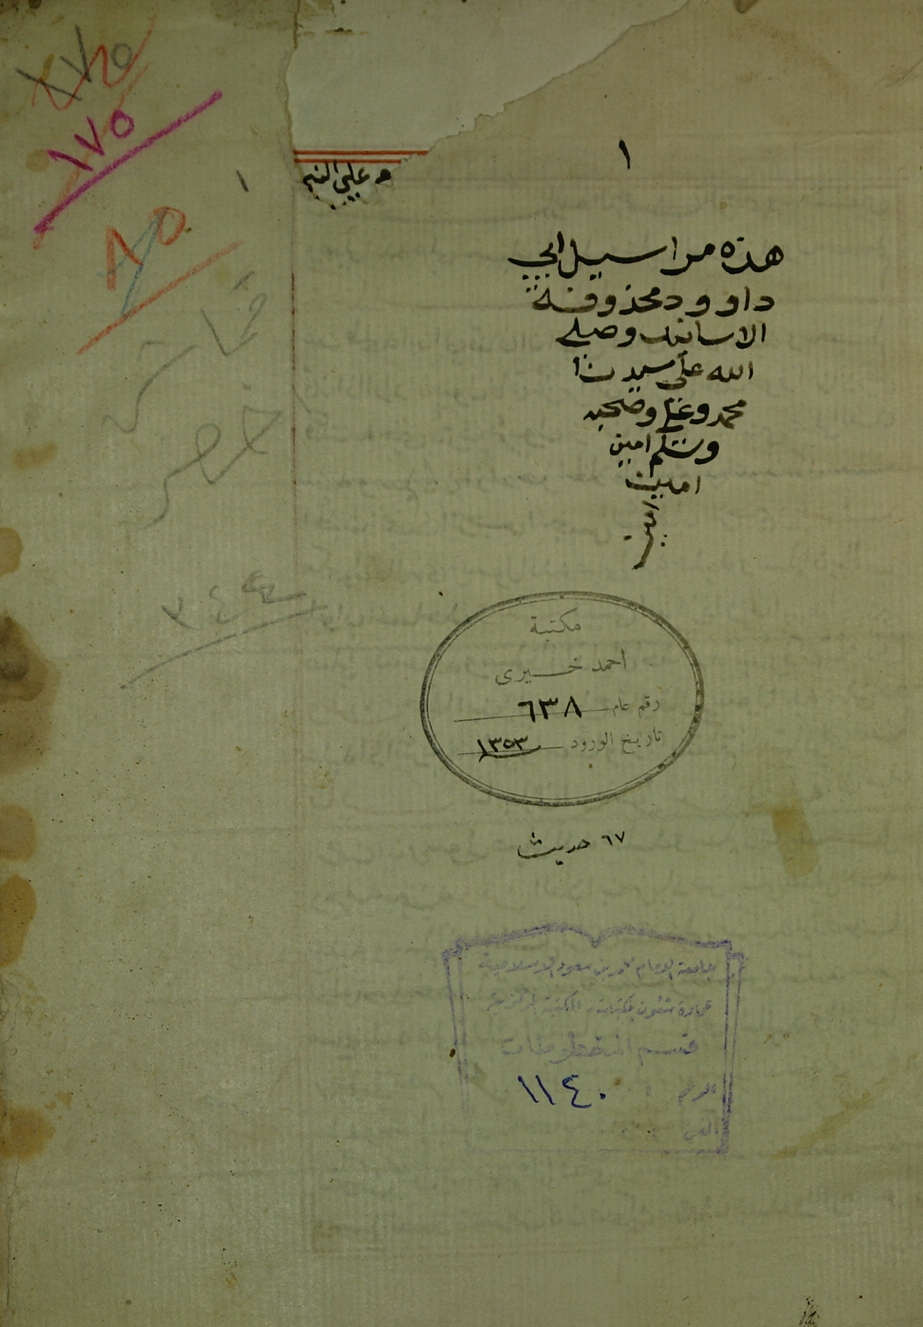 ١٧٥
١
وعلي النبي
١
هذه مراسيل ابي
داوود محذوفة
الاسانيد وصلى
الله على سيدنا
محمد وعلى وصحبه
وسلم امين
امين
مكتبة
احمد خيرى
رقم عام ٦٣٨
تاريخ الورود ١٣٥٣
٦٧ حديث
جامعة الإمام محمد بن سعود الإسلامية
عمادة شئون المكتبات - المكتبة المركزية
قسم المخطوطات
الرقم ١١٤٠